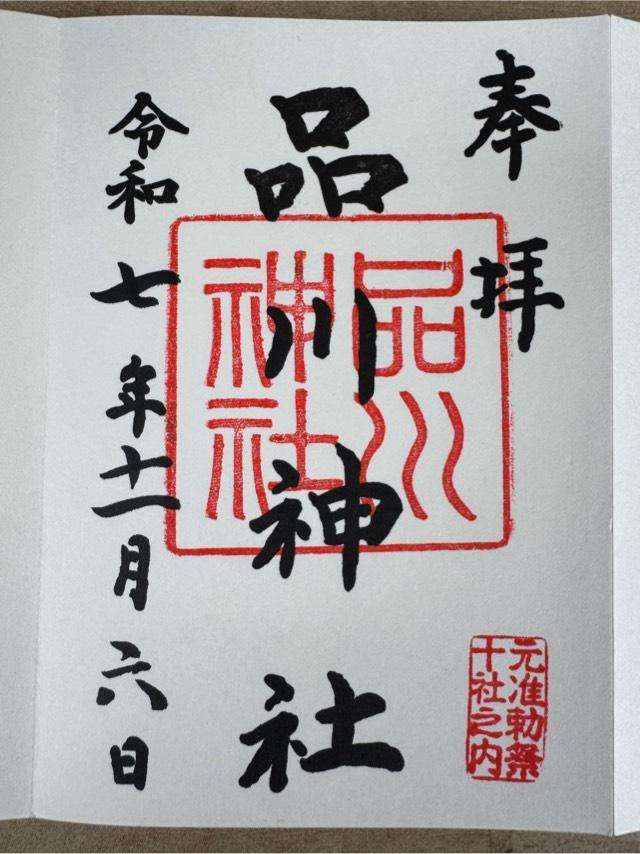 奉拝
品川神社
品川
神社
元准勅祭
十社之内
令和七年十一月六日